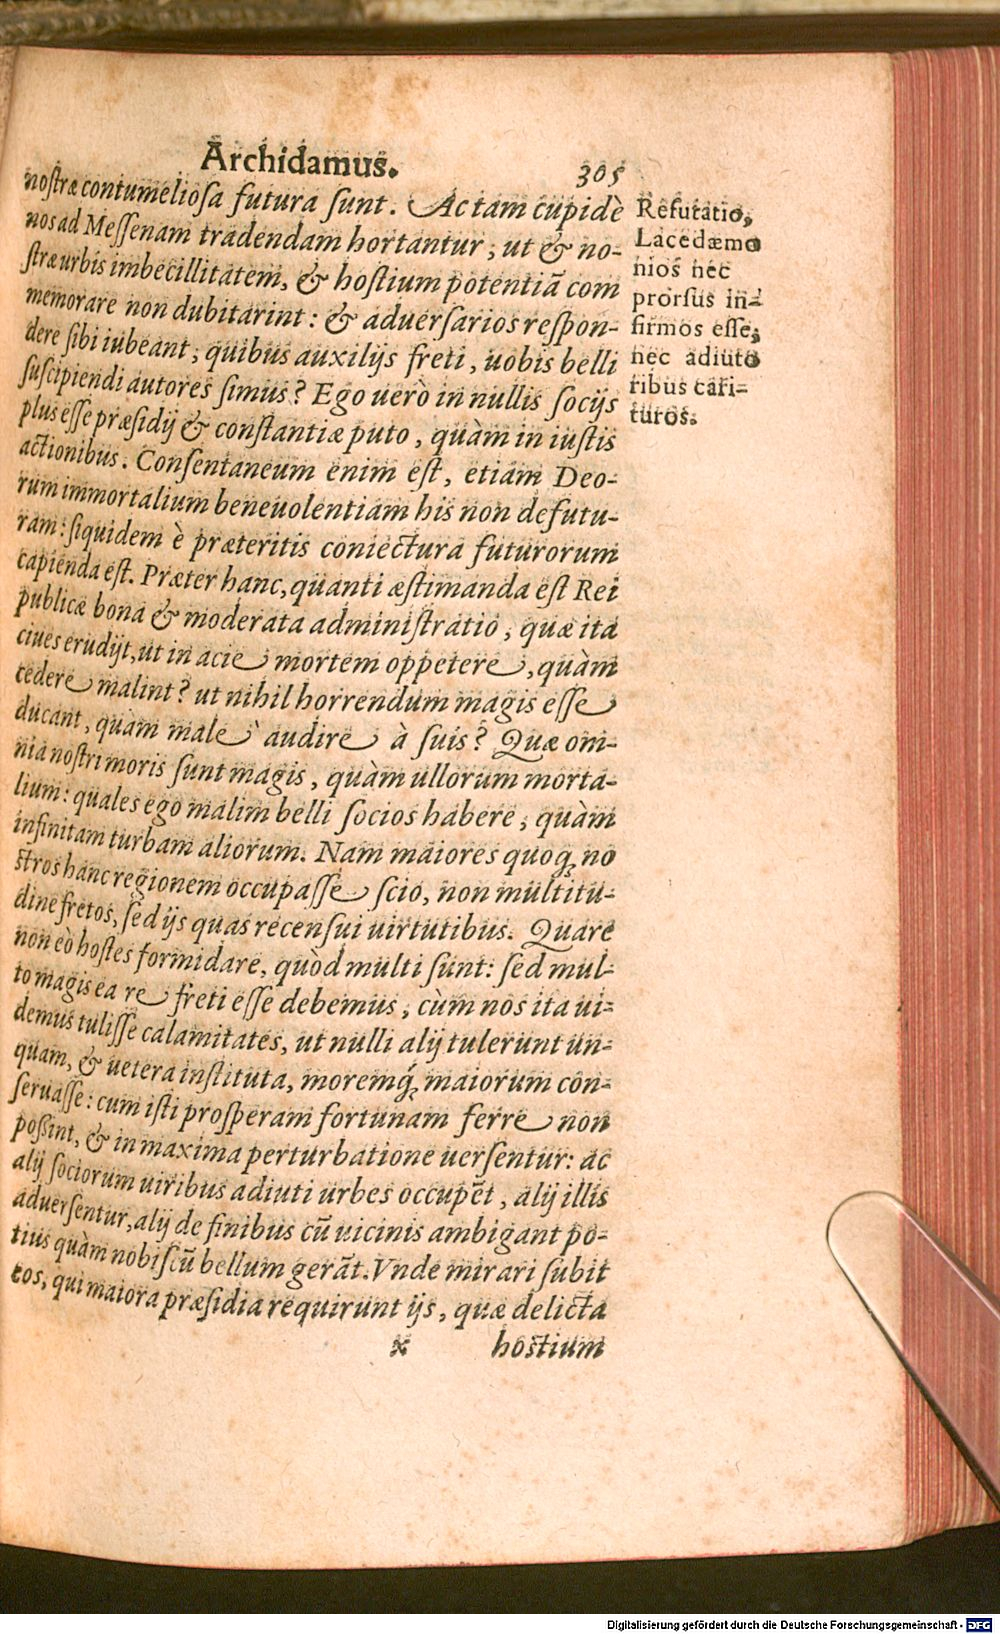 Archidamus. 305
nostræ contumeliosa futura sunt. Ac tam cupidè
nos ad Messenam tradendam hortantur, ut & no-
stræ urbis imbecillitatem, & hostium potentiã com
memorare non dubitarint: & aduersarios respon-
dere sibi iubeant, quibus auxilijs freti, uobis belli
suscipiendi autores simus? Ego uerò in nullis socijs
plus esse præsidij & constantiæ puto, quàm in iustis
actionibus. Consentaneum enim est, etiam Deo-
rum immortalium beneuolentiam his non defutu-
ram: siquidem è præteritis coniectura futurorum
capienda est. Præter hanc, quanti æstimanda est Rei
publicæ bona & moderata administratio, quæ ita
ciues erudijt, ut in acie mortem oppetere, quàm
cedere malint? ut nihil horrendum magis esse
ducant, quàm male audire à suis? Quæ om-
nia nostri moris sunt magis, quàm ullorum morta-
lium: quales ego malim belli socios habere, quàm
infinitam turbam aliorum. Nam maiores quoq; no
stros hanc regionem occupasse scio, non multitu-
dine fretos, sed ijs quas recensui uirtutibus. Quare
non eò hostes formidare, quòd multi sunt: sed mul-
to magis ea re freti esse debemus, cùm nos ita ui-
demus tulisse calamitates, ut nulli alij tulerunt un-
quam, & uetera instituta, moremq́; maiorum con-
seruasse: cum isti prosperam fortunam ferre non
possint, & in maxima perturbatione uersentur: ac
alij sociorum uiribus adiuti urbes occupẽt, alij illis
aduersentur, alij de finibus cũ uicinis ambigant po-
tius quàm nobiscũ bellum gerãt. Vnde mirari subit
eos, qui maiora præsidia requirunt ijs, quæ delicta
x hostium
Refutatio,
Lacedæmo
nios nec
prorsus in-
firmos esse,
nec adiuto
ribus cari-
turos.
Digitalisierung gefördert durch die Deutsche Forschungsgemeinschaft - DFG